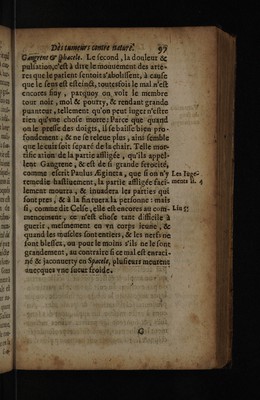 Des tumeurs contre nature. 97
Gangrene & sphacele. Le second, la douleur &
pulsation, c'est à dire le mouuement des arte-
res que le patient sentoit s'abolissent, à cause
que le sens est esteinct, toutesfois le mal n'est
encores foy, parquoy on voit le membre
tout noir, mol & pourry, & rendant grande
puanteur, tellement qu'on peut iuger n'estre
rien qu'vne chose morte: Parce que quand
on le presse des doigts, il se baisse bien pro-
fondement, & ne se releue plus, ainsi semble
que le cuir soit separé de la chair. Telle mor-
tification de la partie affligée, qu'ils appel-
lent Gangrene, & est de si grande ferocité,
comme escrit Paulus Ægineta, que si on n'y
remedie hastiuement, la partie affligée faci-
lement mourra, & inuadera les parties qui
sont pres, & à la fin tuera la personne: mais
si, comme dit Celse, elle est encores au com-
mencement, ce n'est chose tant difficile à
guerir, mesmement en vn corps ieune, &
quand les muscles sont entiers, & les nerfs ne
sont blessez, ou pour le moins s'ils ne le sont
grandement, au contraire si ce mal est enraci-
né & iaconuerty en Spacele, plusieurs meurent
auecques vne sueur froide.
Les Iuge-
mens li. 4
Liu 5:
G